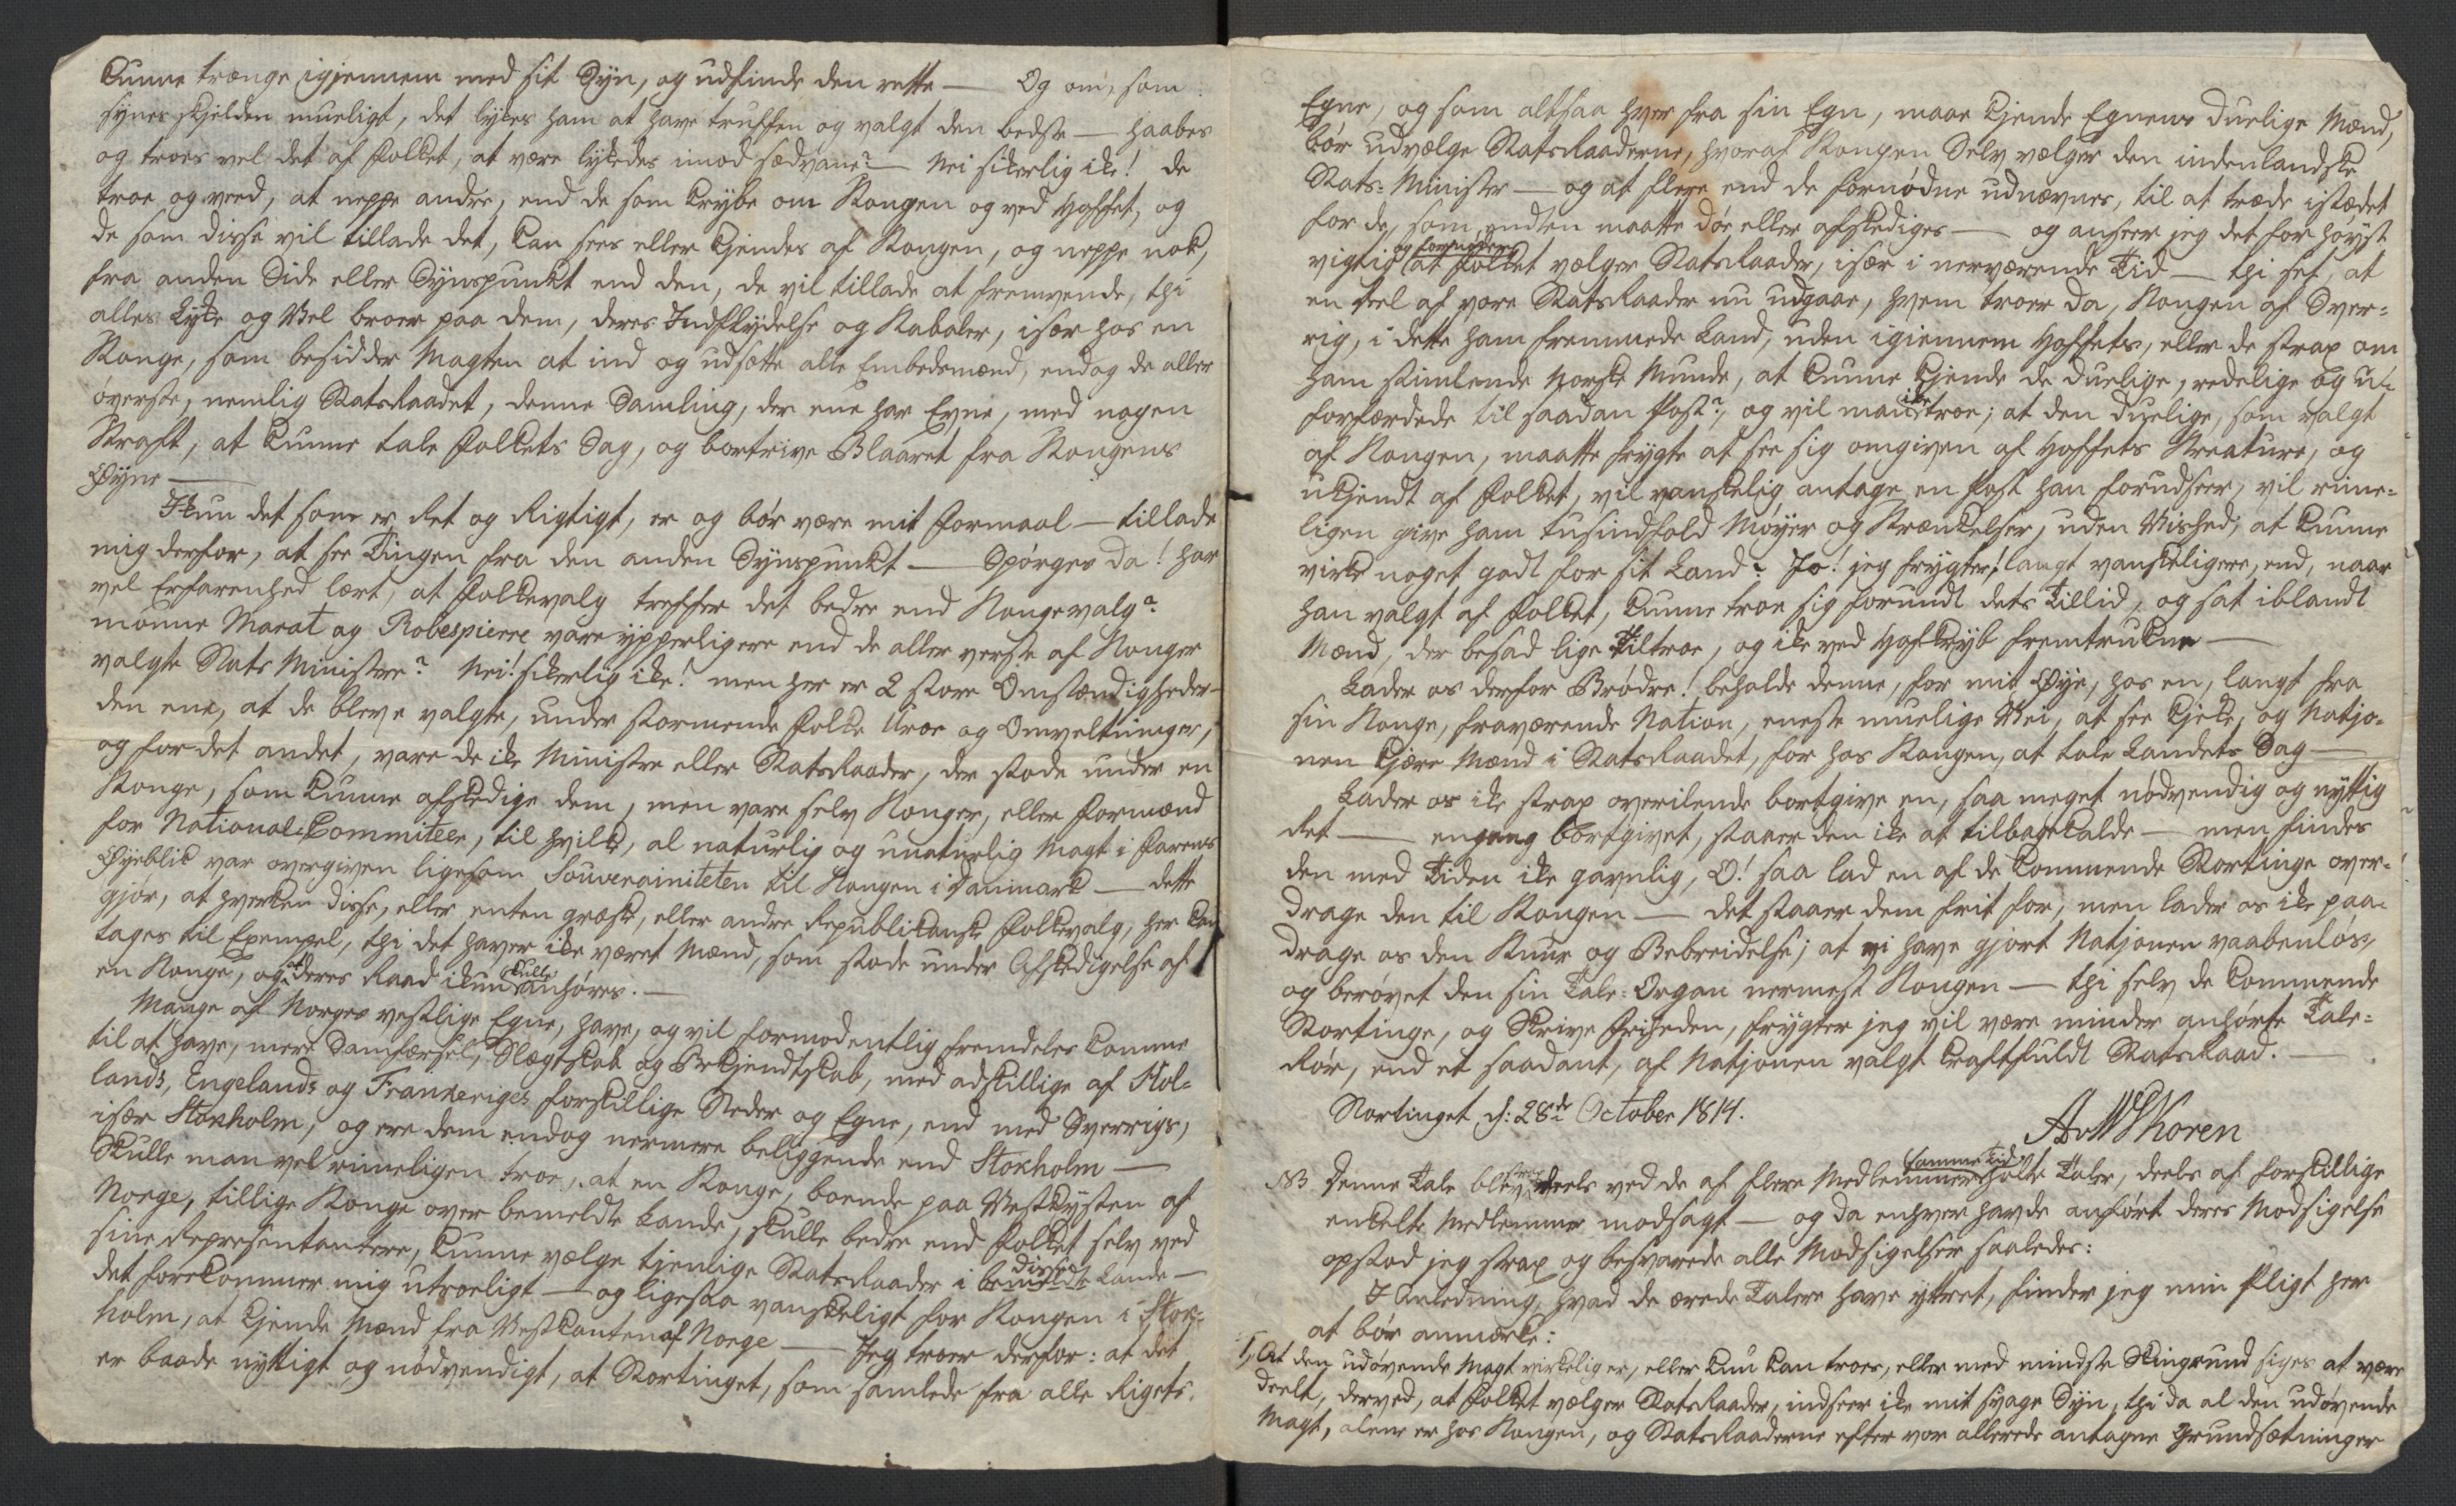 kunne trænge igjennem med sit Syn, og udfinde den rette — Og om, som
synes skjelden mueligt, det lykes ham at have truffen og valgt den bedste — haabes
og troes vel det af Folket, at være lykedes imod sædvane? — Nei sikerlig ike! de
troe og veed, at neppe andre, end de som krybe om Kongen og ved Hoffet, og
de som disse vil tillade det, kan sees eller kjendes af Kongen, og neppe nok,
fra anden Side eller Synspunkt end den, de vil tillade at fremvende, thi
alles Lyke og Vel beroer paa dem, deres Indflydelse og Kabaler, især hos en
Konge, som besidder Magten at ind og udsætte alle Embedsmænd, endog de aller
øverste, nemlig StatsRaadet, denne Samling, der ene har Evne, med nogen
Kraft, at kunne tale Folkets Sag, og bortrive Blaaret fra Kongens
Øyne —
Ikun det som er Ret og Rigtigt, er og bør være mit Formaal — tillade
mig derfor, at see Tingen fra den anden Synspunkt — Spørges da! har
vel Erfarenhed lært, at Folkevalg treffer det bedre end Kongevalg?
monne Marat og Robespierre vare ypperligere end de aller verste af Konger
valgte Stats Ministre? Nei! sikerlig ike! men her er 2 store Omstændigheder —
den ene, at de bleve valgte, under stormende Folke Uroe og Omveltninger,
og for det andet, vare de ike Ministre eller StatsRaader, der stode under en
Konge, som kunne afskedige dem, men vare selv Konger, eller Formænd
for National-Commiteer, til hvilke, al naturlig og unaturlig Magt i Farens
Øyeblik var overgiven ligesom Souverainiteten til Kongen i Danmark — dette
gjør, at hverken disse, eller enten græske, eller andre Republikanske Folkevalg, her kan
tages til Exempel, thi det haver ike været Mænd, som stode under Afskedigelse af
en Konge, og at deres Raad ikun skulle anhøres. —
Mange af Norges vestlige Egne, have, og vil formodentlig fremdeles komme
til at have, mere Samfærsel, Slægtskab og Bekjendtskab, med adskillige af Hol-
lands, Engelands og Frankeriges forskillige Steder og Egne, end med Sverrigs,
især Stokholm, og ere dem endog nermere beliggende end Stokholm —
Skulle man vel rimeligen troe, at en Konge, boende paa Vestkysten af
Norge, tillige Konge over bemeldte Lande, skulle bedre end Folket selv ved
sine Repræsentantere, kunne vælge tjenlige StatsRaader i disse bemeldte Lande —
det forekommer mig utroeligt — og ligesaa vanskeligt for Kongen i Stok-
holm, at kjende Mænd fra Vestkanten af Norge — Jeg troer derfor: at det
er baade nyttigt og nødvendigt, at Stortinget, som samlede fra alle Rigets
Egne, og som altsaa hver fra sin Egn, maae kjende Egnens duelige Mænd,
bør udvælge StatsRaaderne, hvoraf Kongen Selv vælger den indenlandske
Stats-Minister — og at flere end de fornødne udnævnes, til at træde istædet
for de, som endten maatte døe eller afskediges — og anseer jeg det for høyst
vigtig og fornøden at Folket vælger StatsRaader, især i nerværende Tid — thi set, at
en deel af vore StatsRaader nu udgaar, hvem troer da, Kongen af Sver-
rig, i dette ham fremmede Land, uden igiennem Hoffets, eller de strax om
ham stimlende Norske Munde, at kunne kjende de duelige, redelige og u-
forfærdede til saadan Post? og vil man ike troe; at den duelige, som valgt
af Kongen, maatte frygte at see sig omgiven af Hoffets Kreature, og
ukjendt af Folket, vil vanskelig antage en Post han forudseer, vil rime-
ligen give ham tusindfold Møyer og Krænkelser, uden Vished, at kunne
virke noget godt for sit Land? Jo! jeg frygter! langt vanskeligere, end, naar
han valgt af Folket, kunne troe sig forundt dets Tillid, og sat iblandt
Mænd, der besad lige Tiltroe, og ike ved Hofkryb fremtrukne —
Lader os derfor Brødre! beholde denne, for mit Øye, hos en, langt fra
sin Konge, fraværende Nation, eneste muelige Vei, at see kjeke, og Natjo-
nen kjære Mænd i StatsRaadet, for hos Kongen, at tale Landets Sag —
Lader os ike strax overilende bortgive en, saa meget nødvendig og nyttig
Ret — engang bortgivet, staaer den ike at tilbagekalde — men findes
den med Tiden ike gavnlig, O! saa lad en af de kommende Stortinge over-
drage den til Kongen — det staaer dem frit for, men lader os ike paa-
drage os den Knur og Bebreidelse; at vi have gjort Natjonen vaabenløs,
og berøvet den sin Tale-Organ nermest Kongen — thi selv de kommende
Stortinge, og Skrive Friheden, frygter jeg vil være minder anhørte Tale-
Rør, end et saadant, af Natjonen valgt kraftfuldt StatsRaad. —
Stortinget d: 28de October 1814.
AvWSKoren
NB Denne Tale blev deels ved de af flere Medlemmer samme Tid holte Taler, deels af forskillige
enkelte Medlemmer modsagt — og da enhver havde anført deres Modsigelse
opstod jeg strax og besvarede alle Modsigelser saaledes:
I Anledning, hvad de ærede Talere have yttret, finder jeg min Pligt her
at bør anmærke:
1, At den udøvende Magt virkelig er, eller kun kan troes, eller med mindste Skingrund siges at være
deelt, derved, at Folket vælger StatsRaader, indseer ike mit svage Syn, thi da al den udøvende
Magt, alene er hos Kongen, og StatsRaaderne efter vor allerede antagne Grundsætninger